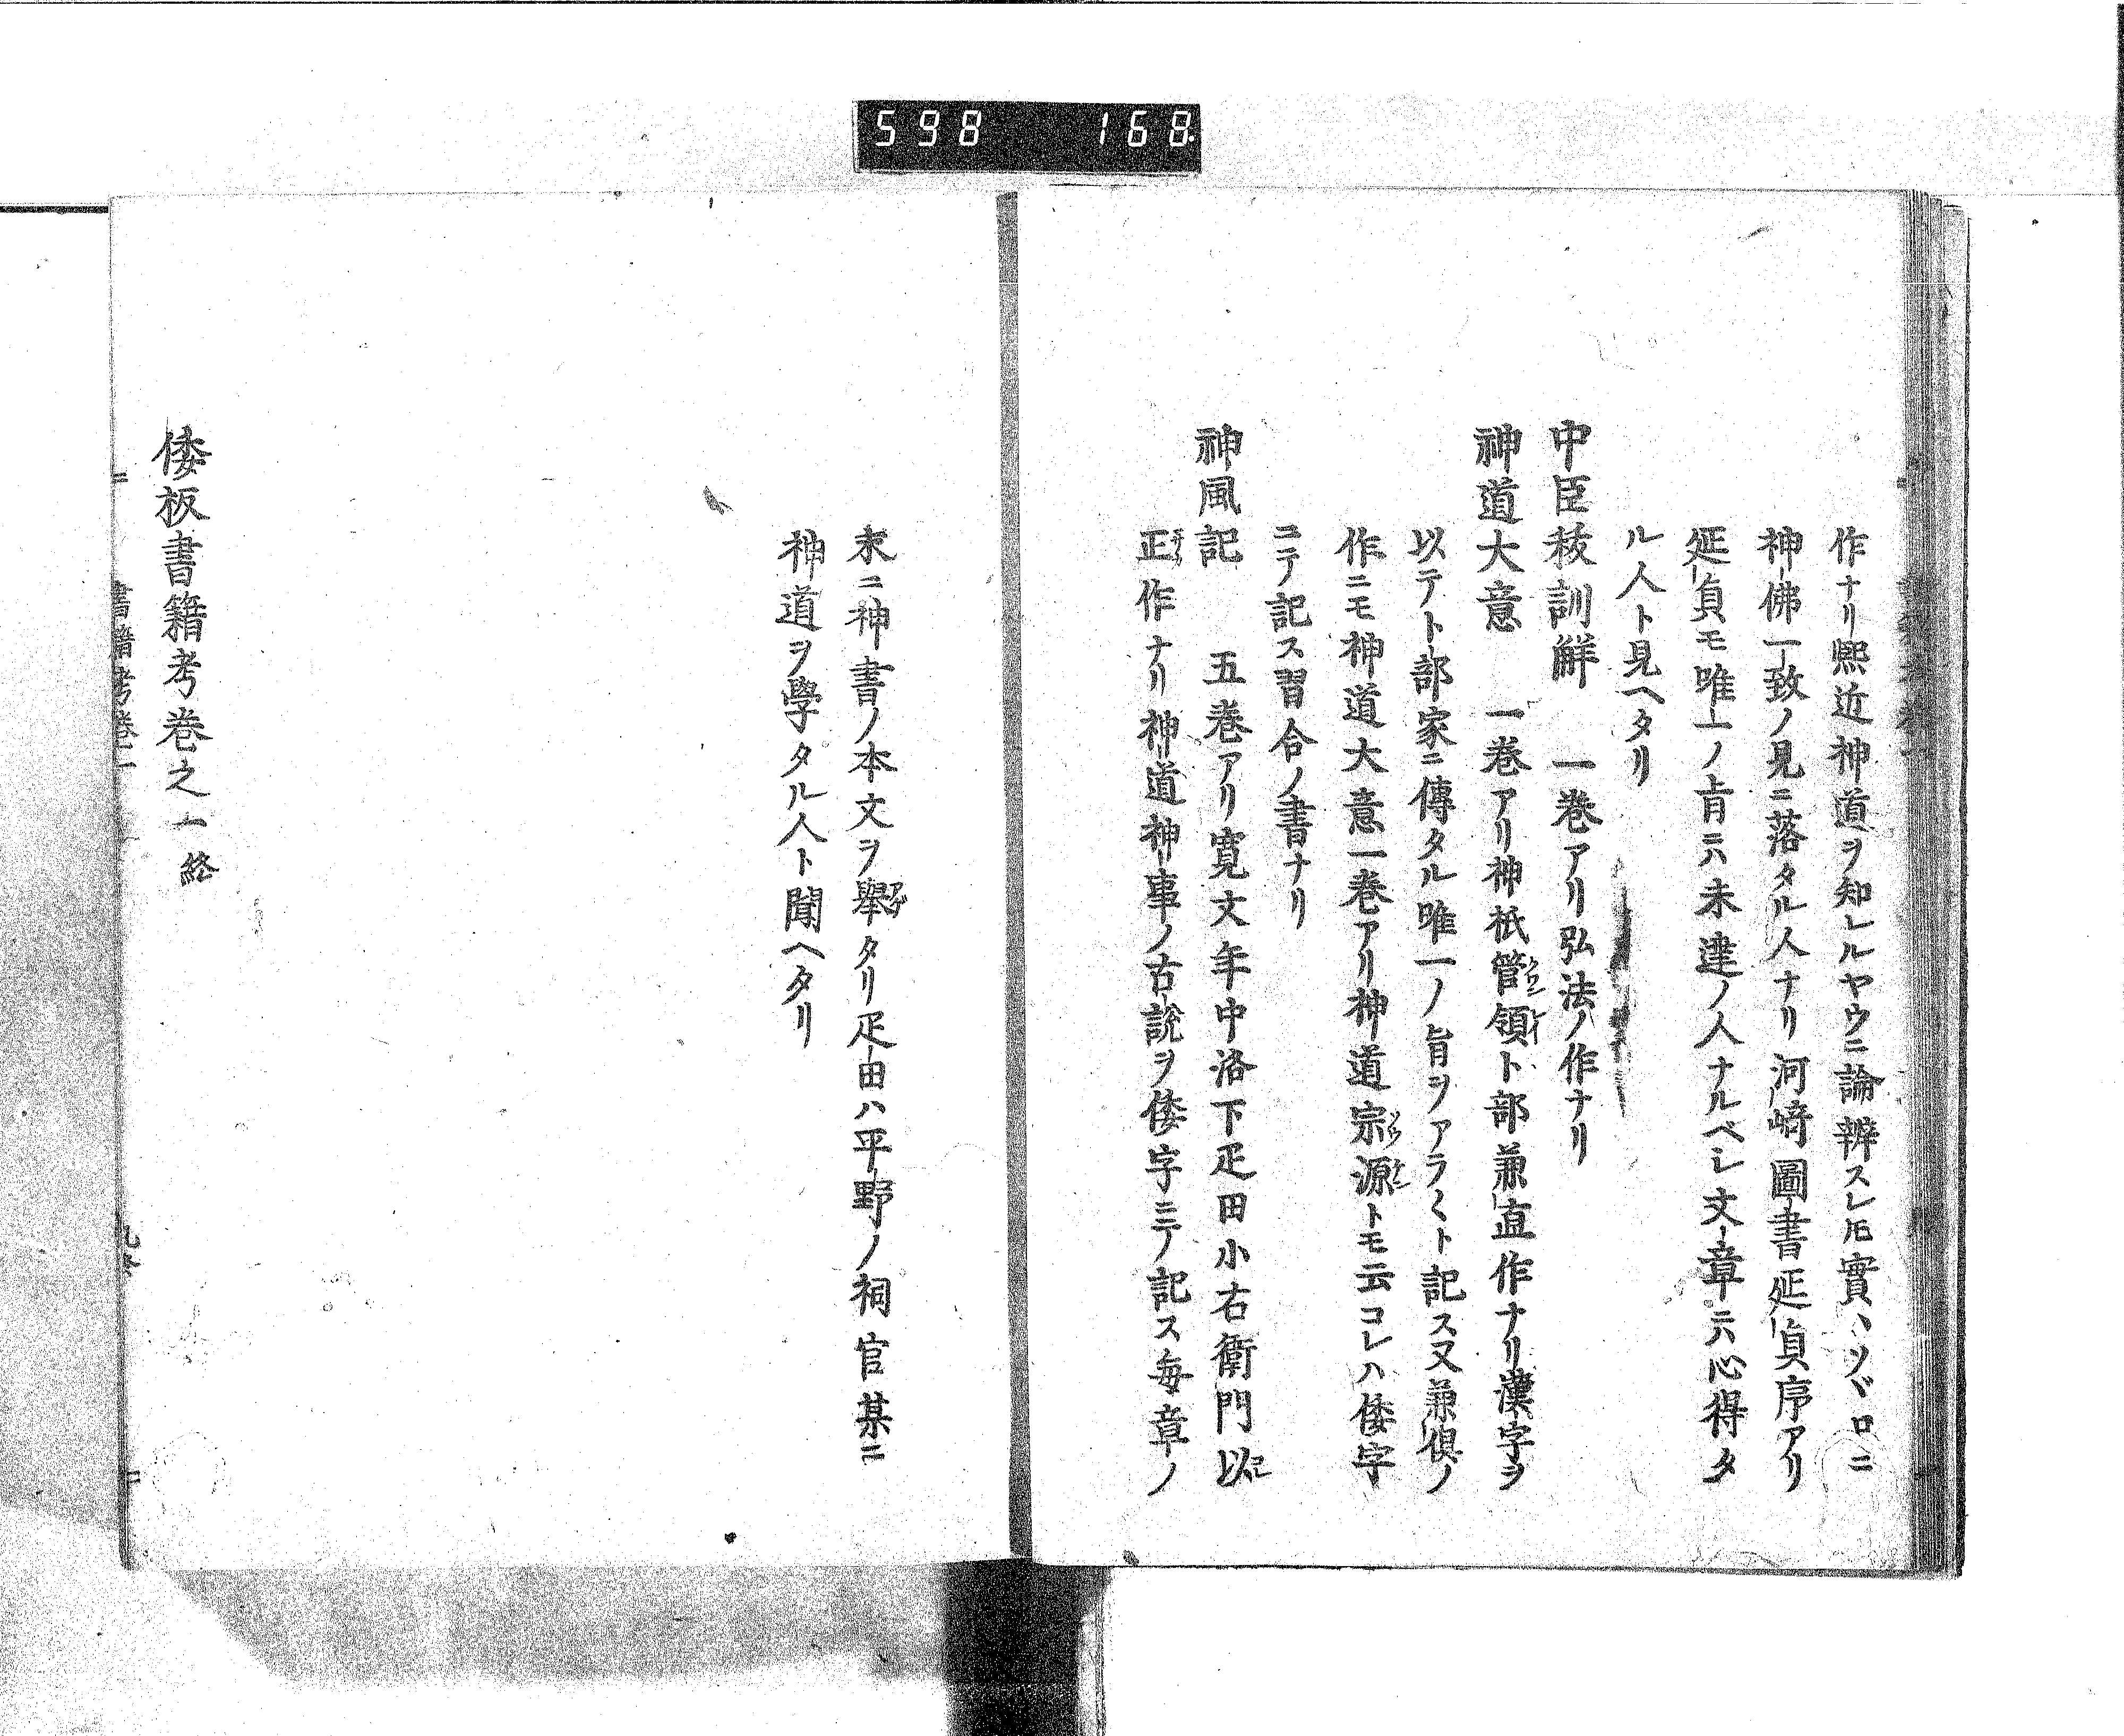 598 168
作ナリ熙近神道ヲ知レルヤウニ論辨スレ𪜈實ハソゾロニ
神佛一致ノ見ニ落タル人ナリ河﨑圖書延貞序アリ
延貞モ唯一ノ旨ニハ未達ノ人ナルベシ文章ニハ心得タ
ル人ト見ヘタリ
中臣祓訓解 一巻アリ弘法ノ作ナリ
神道大意 一巻アリ神祇管領卜部兼直作ナリ漢字ヲ
以テ卜部家ニ傳タル唯一ノ旨ヲアラ〱ト記ス又兼倶ノ
作ニモ神道大意一巻アリ神道宗源トモ云コレハ倭字
ニテ記ス習合ノ書ナリ
神風記 五巻アリ寛文年中洛下疋田小右衛門以
正作ナリ神道神事ノ古説ヲ倭字ニテ記ス毎章ノ
末ニ神書ノ本文ヲ擧タリ疋田ハ平野ノ祠官某ニ
神道ヲ學タル人ト聞ヘタリ
倭板書籍考巻之一終
書籍考巻一